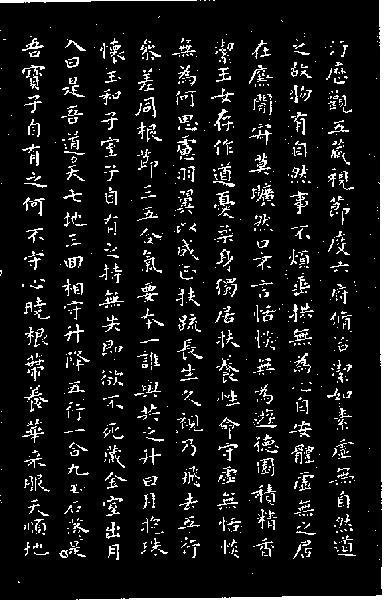 汀歷觀五藏視節度六府脩治潔如素虛無自然道
之故物有自然事不煩垂拱無為心自安體虛無之居
在廉閒寂莫曠然口不言恬惔無為遊德園積精香
潔玉女存作道憂柔身獨居扶養性命守虛無恬惔
無為何思慮羽翼以成正扶疏長生久視乃飛去五行
參差同根節三五合氣要本一誰與共之升日月抱珠
懷玉和子室子自有之持無失即欲不死藏金室出月
入日是吾道天七地三回相守升降五行一合九玉石落〻是
吾寶子自有之何不守心曉根蔕養華采服天順地